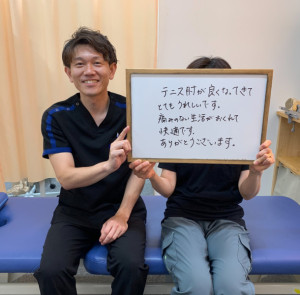 テニス肘が良くなってきて
とてもうれしいです。
痛みのない生活がおくれて
快適です。
ありがとうございます。